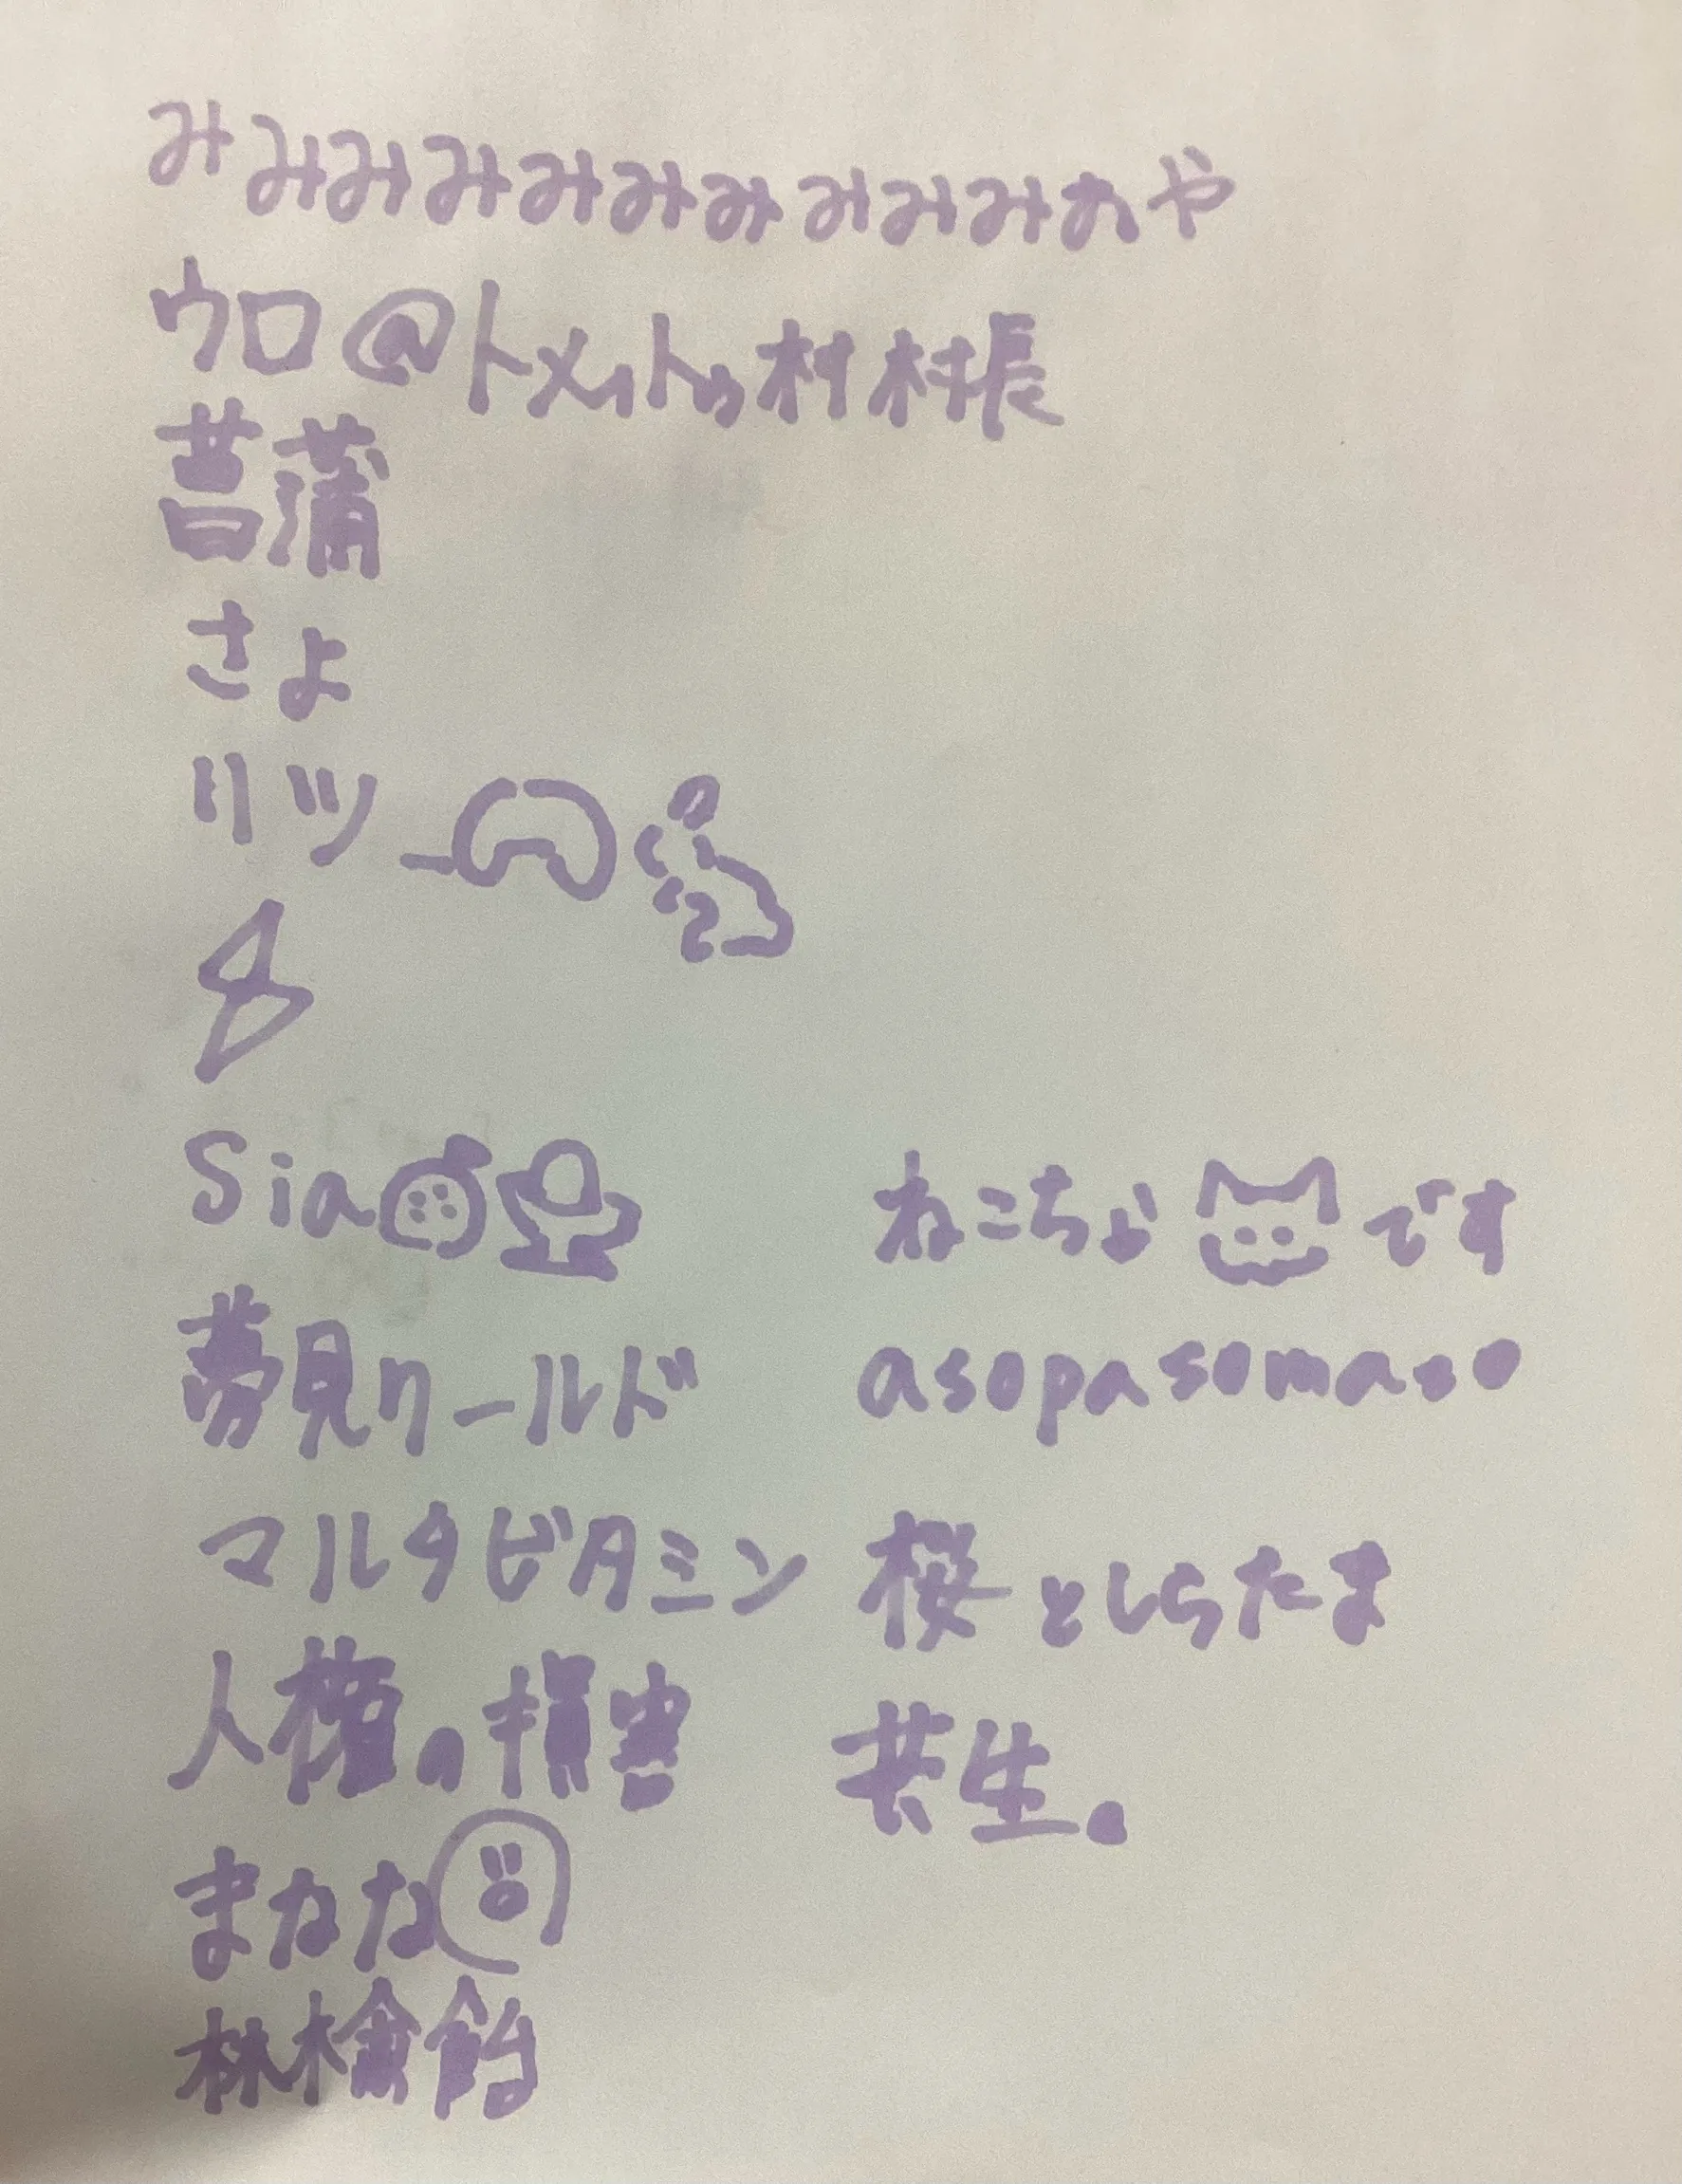 みみみみみみみみみみおや
ウロ@トメィトゥ村村長
菖蒲
さよ
リツ
Sia
夢見ワールド
マルチビタミン
人権の損害
まなな
林檎飴
ねこちよですよ
asopasomaso
桜としらたま
共生。